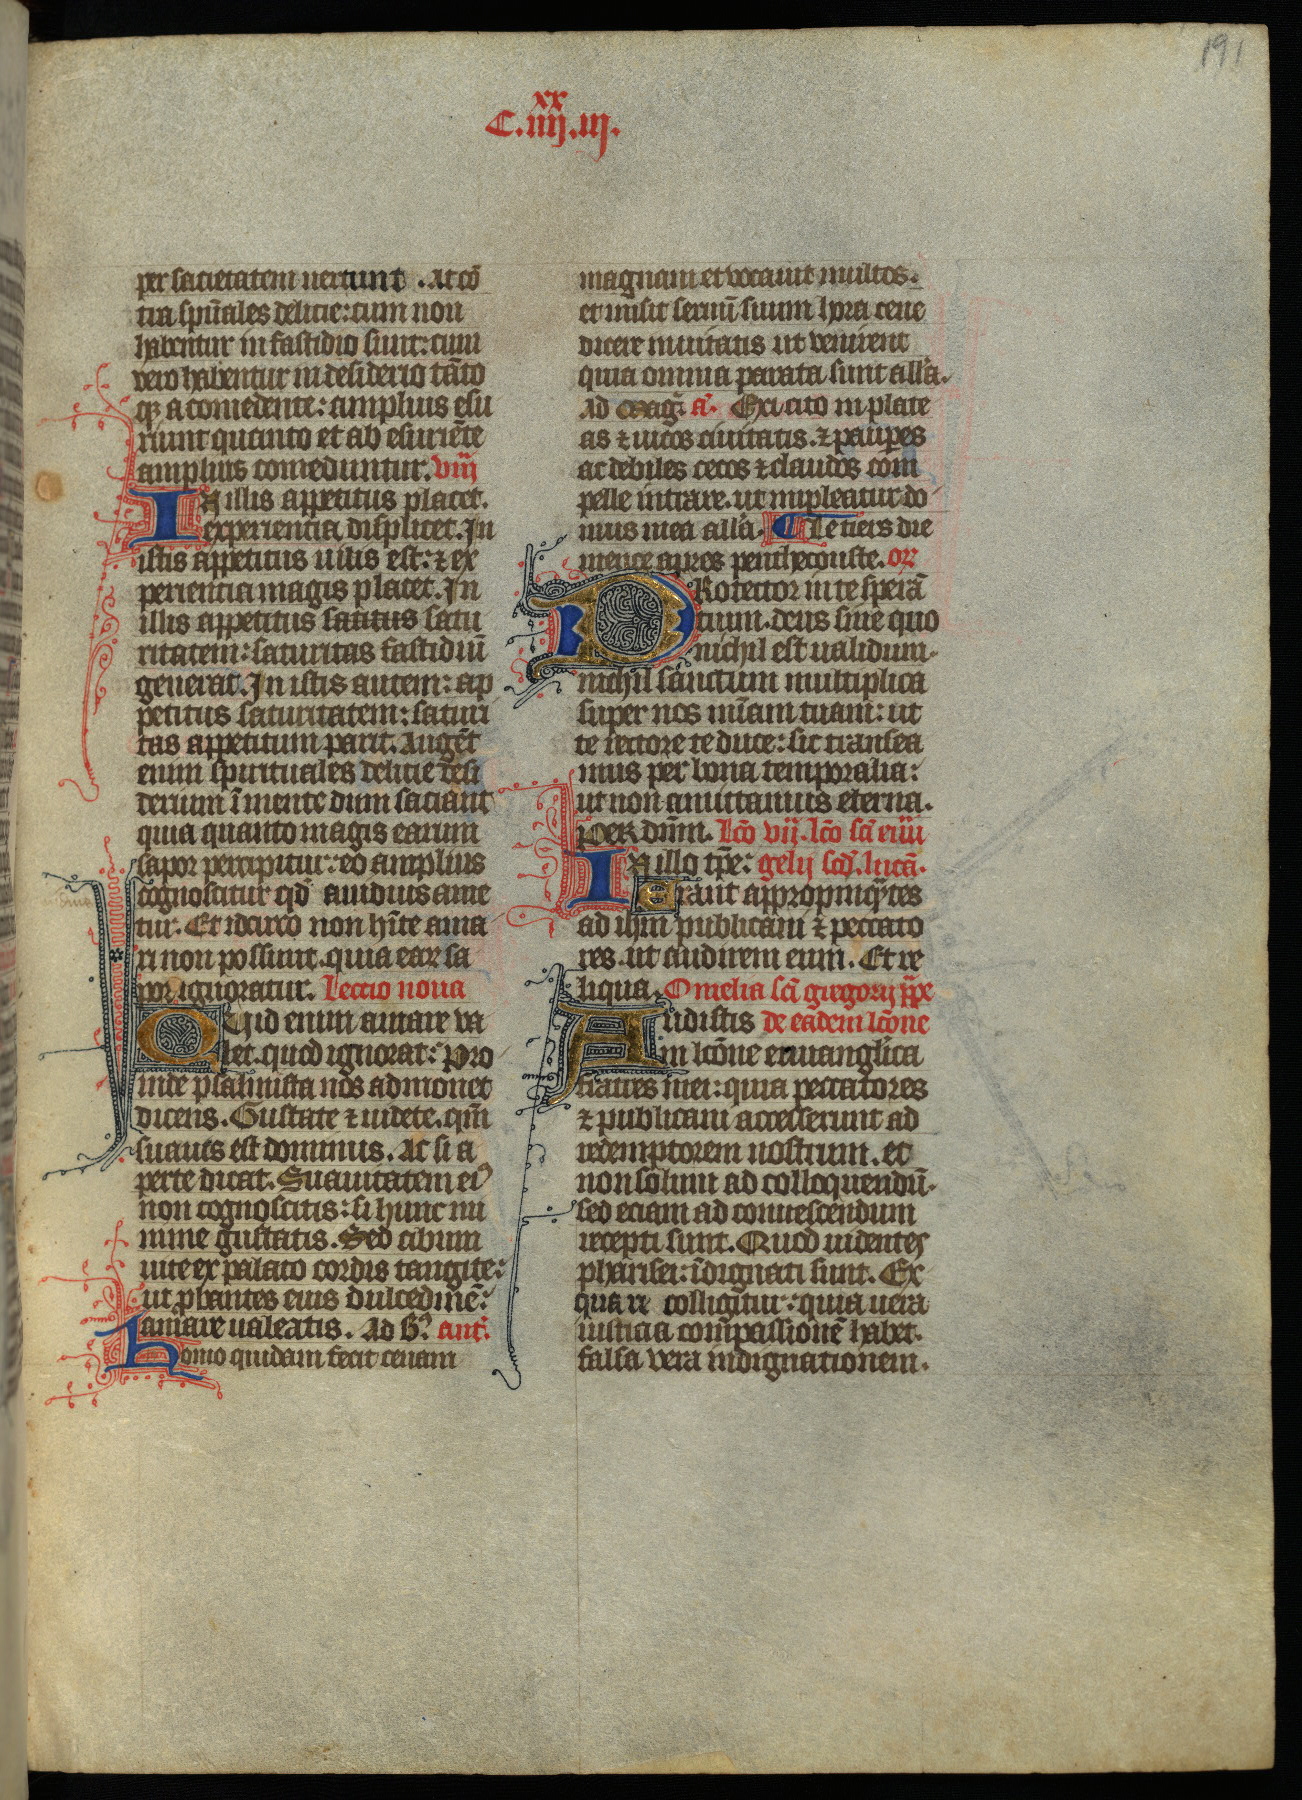 191
xx
C.iiij.iij.
per satietatem uertunt . At cō
tra spūales delicie: cum non
habentur in fastidio sunt: cum
vero habentur in desiderio tāto
qȝ a comedente: amplius esu
riunt quanto et ab esuriēte
amplius comeduntur. viij
IN illis appetitus placet.
experiencia displicet. In
istis appetitus uilis est: ⁊ ex
periencia magis placet. In
illis appetitus satitas satu
ritatem: saturitas fastidiū
generat. In istis autem: ap
petitus saturitatem: saturi
tas appetitum parit. Augēt
enim spirituales delicie desi
derium ī mente dum saciant
quia quanto magis earum
sapor percipitur: eo amplius
cognoscitur qd̄ auidius ame
tur. Et idcirco non hīte ama
ri non possunt. quia ear sa
por ignoratur. Lectio nona
QUid enim amare va
let. quod ignorat: Pro
inde psalmista nos admonet
dicens. Gustate ⁊ uidete. qm̄
suauis est dominus. Ac si a
perte dicat. Suauitatem ei⁹
non cognoscitis: si hunc mi
nime gustatis. Sed cibum
uite ex palato cordis tangite:
ut ꝓbantes eius dulcedinē:
amare ualeatis. Ad b̄. ant̄.
homo quidam fecit cenam
magnam et vocauit multos.
et misit seruū suum hora cene
dicere inuitatis ut venirent
quia omnia parata sunt allā.
Ad maḡ. a. Exi cito in plate
as ⁊ uicos ciuitatis. ⁊ paupes
ac debiles cecos ⁊ claudos com
pelle intrare. ut impleatur do
mus mea allā. Le tiers die
mence apres penthecouste. or
PRotector in te sperā
tium. deus sine quo
nichil est ualidum.
nichil sanctum multiplica
super nos mīam tuam: ut
te rectore te duce: sic transea
mus per bona temporalia:
ut non amittamus eterna.
Per dūm. lcō vij. lcō scī euu
IN illo tp̄e: gelij scd̄. lucā.
Erant appropinq̄tes
ad ihm publicani ⁊ peccato
res. ut audirent eum. Et re
liqua. Omelia scī gregorij pp̄e
AUdistis de eadem lcōne
in lcōne euuanglīca
fratres mei: quia peccatores
⁊ publicani accesserunt ad
redemptorem nostrum. et
non solum ad colloquendū.
sed eciam ad conuescendum
recepti sunt. Quod uidentes
pharisei: īdignati sunt. Ex
qua re colligitur: quia uera
iusticia compassionē habet.
falsa vera indignationem.